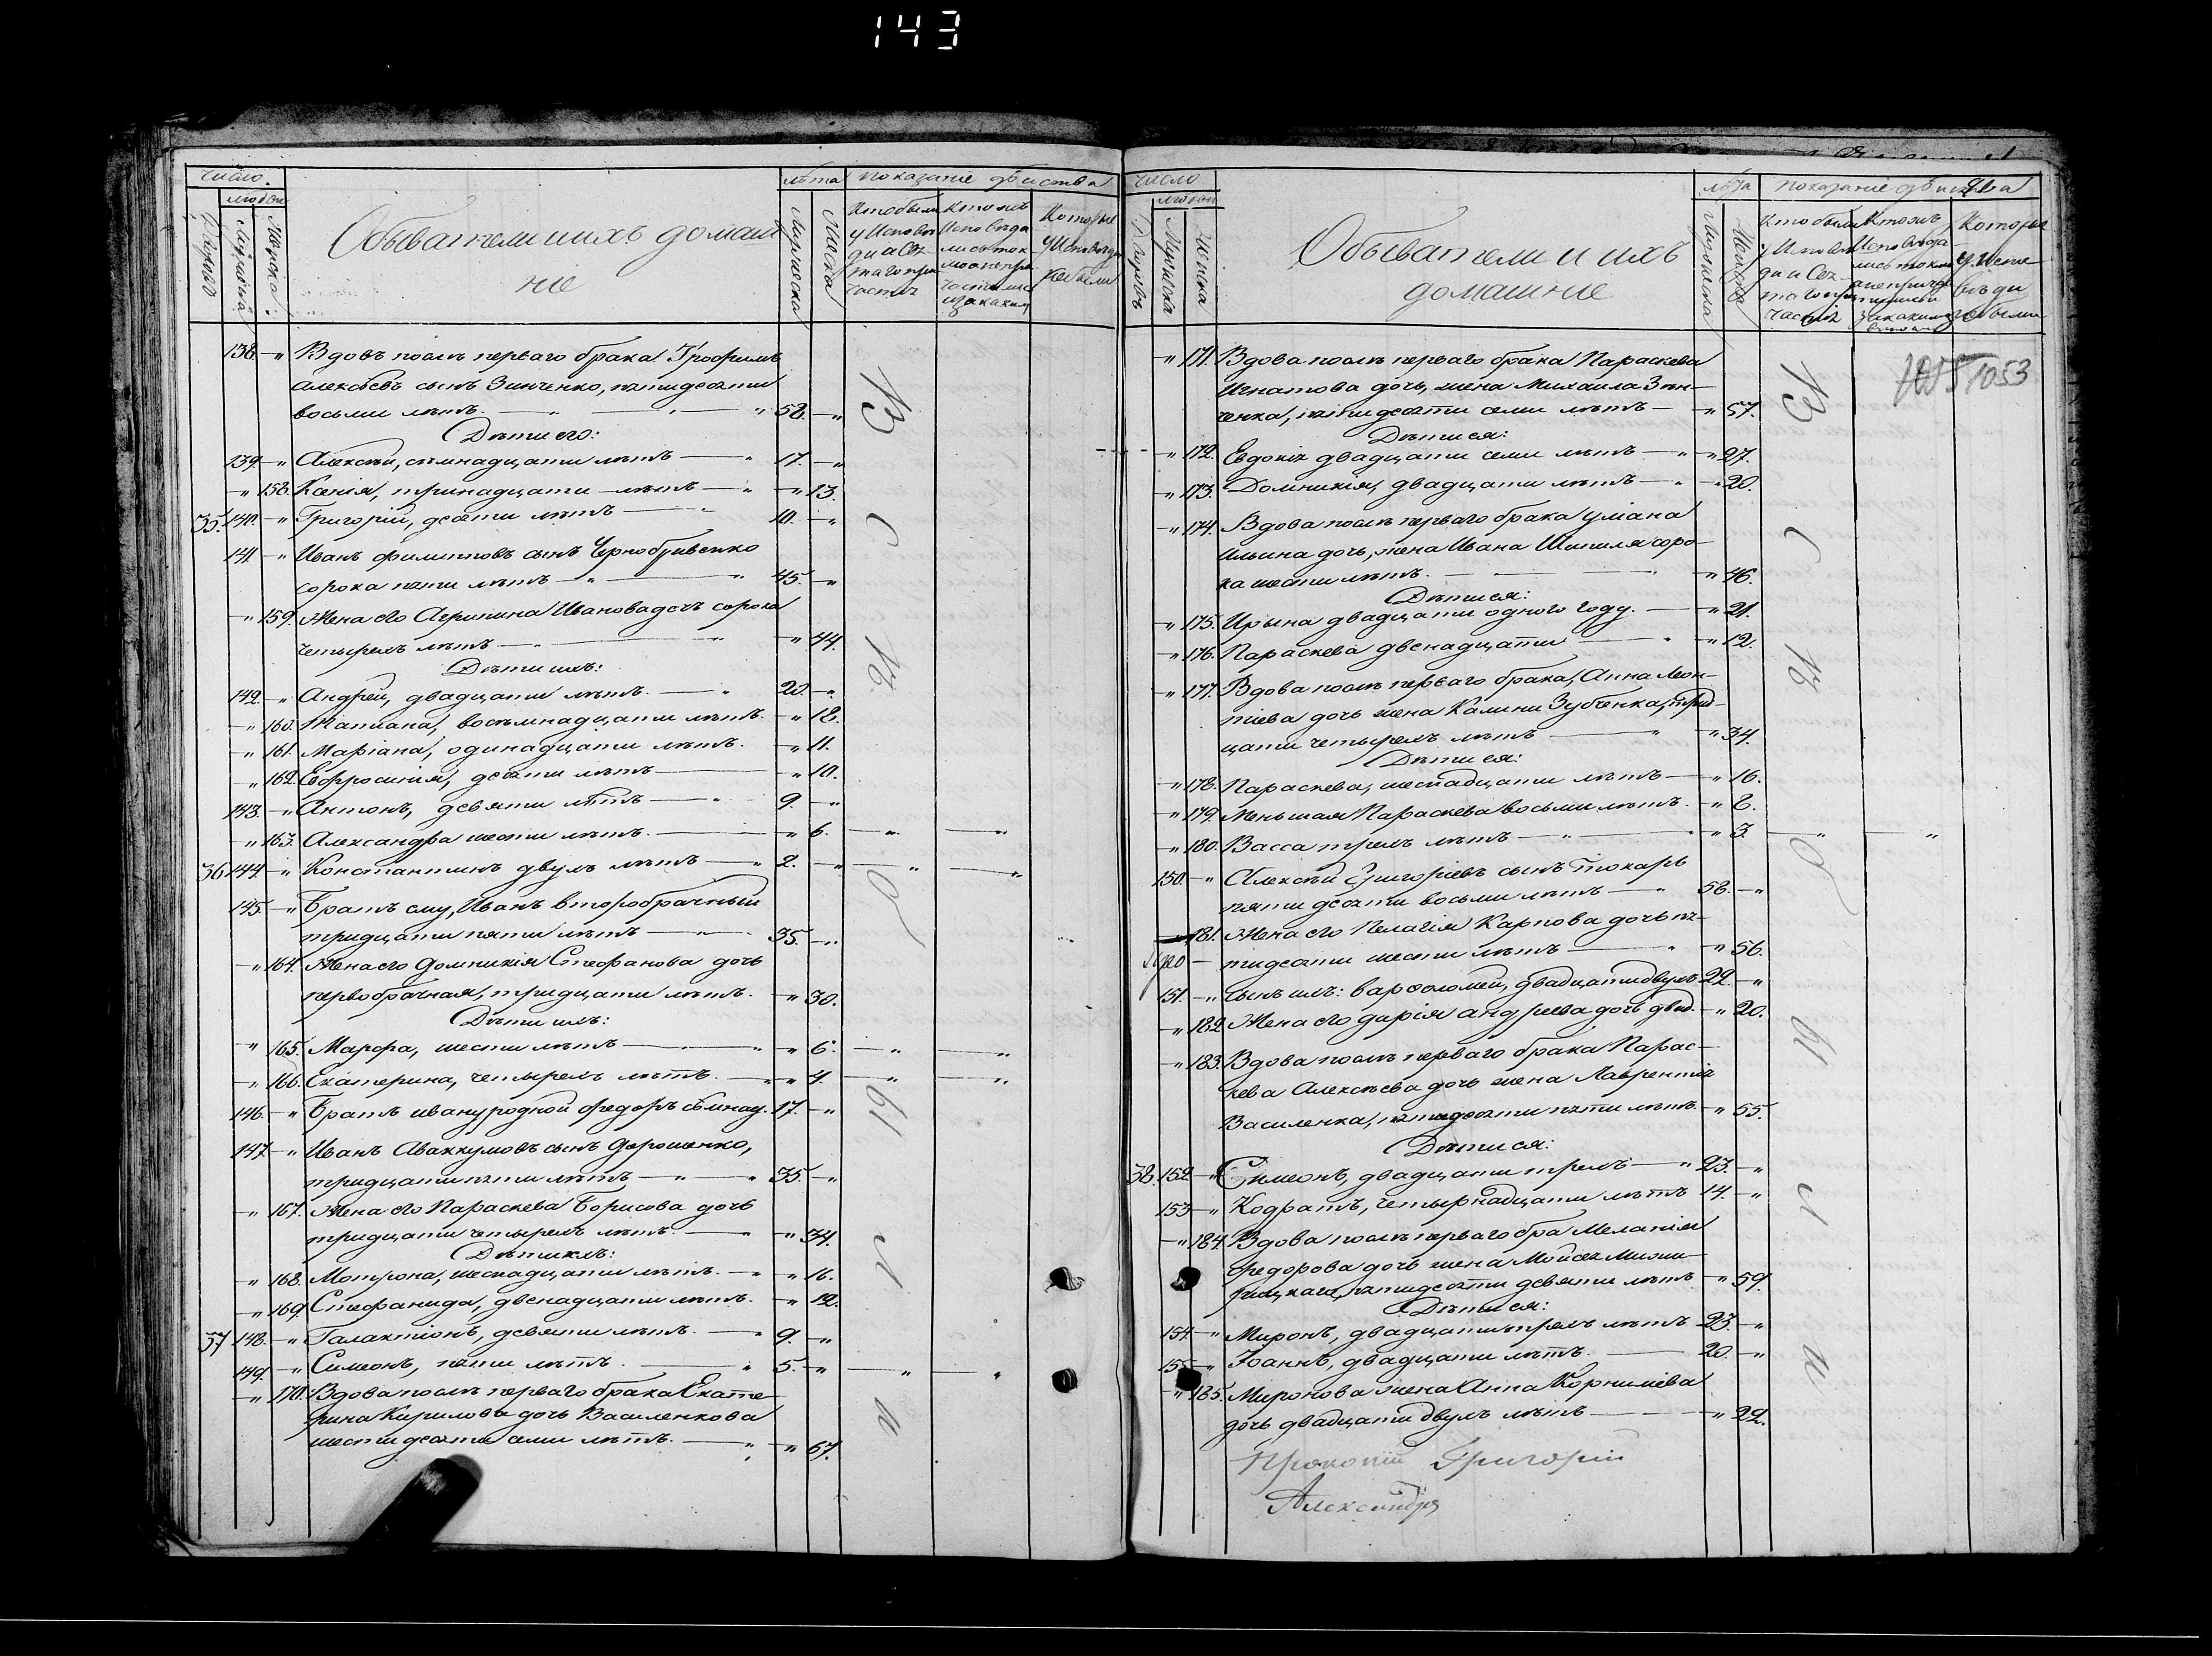 143
число.
людей
лѣта показанiе дѣиства
Дворовъ
Мужеска
Женска
Обыватели ихъ домаш
нiе
Мужеска
Женска
Кто были
у Испове
ди и Свя
таго при
частія
Кто же
Исповѣда
лись ток
мо а непри
частились
и за каким
Которые
у Исповѣди
не были
138. — „ Вдовъ послѣ перваго брака Трофимъ
Алексѣевъ сынъ Зинченко, пятидесяти
восьми лѣтъ. — „ 58. — „
Дѣти его:
139. — „ Алексѣй, семнадцати лѣтъ — „ 17. — „
— „ 158. Ксенія, тринадцати лѣтъ — „ — „ 13.
35. 140. — „ Григорій, десяти лѣтъ — „ 10. — „
141. — „ Иванъ Филипповъ сынъ Чернобривенко
сорока пяти лѣтъ — „ — „ 45. — „
— „ 159. Жена его Агрипина Иванова дочь сорока
четырехъ лѣтъ — „ — „ 44.
Дѣти ихъ:
142. — „ Андрей, двадцати лѣтъ. — „ 20. — „
— „ 160. Татіана, восемнадцати лѣтъ. — „ 18.
— „ 161. Маріана, одинадцати лѣтъ. — „ 11.
— „ 162. Евфросинія, десяти лѣтъ — „ 10.
143. — „ Антонъ, девяти лѣтъ — „ 9. — „
— „ 163. Александра шести лѣтъ. — „ 6. — „ — „
36 144. — „ Константинъ двухъ лѣтъ — „ 2. — „ — „ — „
145. — „ Братъ ему, Иванъ второбрачный
тридцати пяти лѣтъ — „ 35. — „
— „ 164. Жена его Домникія Стефанова дочь
первобрачная, тридцати лѣтъ. — „ 30.
Дѣти ихъ:
— „ 165. Марфа, шести лѣтъ — „ — „ 6. — „ — „
— „ 166. Екатерина, четырехъ лѣтъ. — „ 4. — „ — „
146. — „ Братъ ивану родной Федоръ семнад. 17. — „
147 — „ Иванъ Аваккумовъ сынъ Дорошенко,
тридцати пяти лѣтъ, — „ — „ 35. — „
— „ 167. Жена его Параскева Борисова дочь
тридцати четырехъ лѣтъ. — „ — „ 34.
Дѣти ихъ:
— „ 168. Мотрона, шеснадцати лѣтъ. — „ — „ 16.
— „ 169. Стефанида, двенадцати лѣтъ. — „ 12.
37 148. — „ Галактіонъ, девяти лѣтъ. — „ 9. — „
149. — „ Симеонъ, пяти лѣтъ. — „ 5. — „ — „ — „
— „ 170. Вдова послѣ перваго брака Екате
рина Кирилова дочь Василенкова
шестидесяти семи лѣтъ. — „ — „ 67.
В
с
ѣ
б
ы
л
и
число
людей
лѣта показаніе дѣиства
Дворовъ
Мужеска
Женска
Обыватели и ихъ
домашніе
Мужеска
Женска
Кто были
у Испове
ди и Свя
таго при
частія
Кто же
Исповѣда
лись токмо
а непричас
тились
за какимъ
Которые
у Испо
вѣди
не были
1053
— „ 171. Вдова послѣ перваго брака Параскева
Игнатова дочь, жена Михаила Зин-
ченка, пятидесяти семи лѣтъ — „ 57.
Дѣти ея:
— „ 172. Евдокія двадцати семи лѣтъ — „ — „ 27.
— „ 173. Домникія, двадцати лѣтъ — „ — „ 20.
— „ 174. Вдова послѣ перваго брака Уліана
Ильина дочь, жена Ивана Шипиля соро-
ка шести лѣтъ. — „ — „ 46.
Дѣти ея:
— „ 175. Ирына двадцати одного году. — „ 21.
— „ 176. Параскева двенадцати — „ — „ 12.
— „ 177. Вдова послѣ перваго брака, Анна Леон-
тіева дочь жена Калини Зубченка, трид-
цати четырехъ лѣтъ — „ — „ 34.
Дѣти ея:
— „ 178. Параскева, шеснадцати лѣтъ — „ 16.
— „ 179. Меньшая Параскева восьми лѣтъ. — „ 8.
— „ 180. Васса трехъ лѣтъ — „ — „ 3. — „ — „
150. — „ Алексѣй Григоріевъ сынъ Токарь
пятидесяти восьми лѣтъ — „ 58. — „
— 181. Жена его Пелагія Карпова дочь пя-
тидесяти шести лѣтъ — „ — „ 56.
151. — „ Сынъ ихъ: Варѳоломей, двадцати двухъ 22. — „
— „ 182. Жена его Дарія Андреева дочь двад. — „ 20.
— „ 183. Вдова послѣ перваго брака Парас-
кева Алексѣева дочь жена Лаврентія
Василенка, пятидесяти пяти лѣтъ. — „ 55.
Дѣти ея:
38. 152 — „ Симеонъ, двадцати трехъ — „ 23. — „
153 — „ Кодратъ, четырнадцати лѣтъ 14. — „
— „ 184. Вдова послѣ перваго бра Меланія
Федорова дочь жена Мойсея
пятидесяти девяти лѣтъ — „ 59.
Дѣти ея:
154. — „ Миронъ, двадцати трехъ лѣтъ 23. — „
155 — „ Іоаннъ, двадцати лѣтъ. — 20. — „
— „ 185. Миронова жена Анна Корниліева
дочь двадцати двухъ лѣтъ — — „ 22.
Прокопій Григорій
Александръ
В
с
ѣ
б
ы
л
и